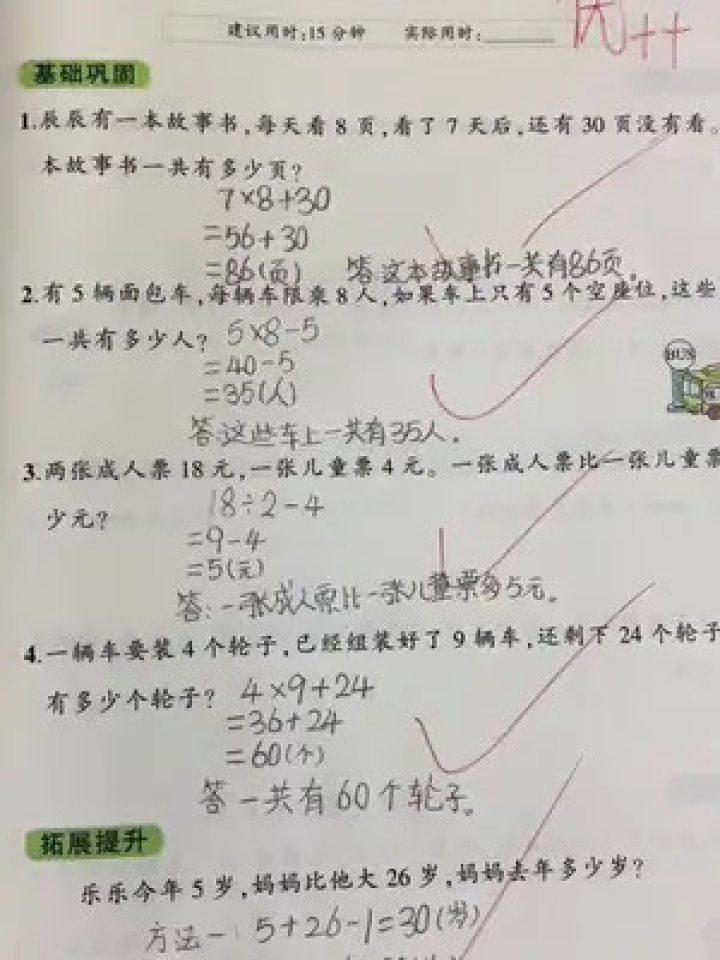 建议用时:15分钟 实际用时:
优++
基础巩固
1.辰辰有一本故事书,每天看8页,看了7天后,还有30页没有看。
本故事书一共有多少页?
7×8+30
=56+30
=86(页) 答这本故事书一共有86页。
2.有5辆面包车,每辆车限乘8人,如果车上只有5个空座位,这些
一共有多少人? 5×8-5
BUS
=40-5
=35(人)
答这些车上一共有35人。
3.两张成人票18元,一张儿童票4元。一张成人票比一张儿童票
少元? 18÷2-4
=9-4
=5(元)
答:一张成人票比一张儿童票多5元。
4.一辆车要装4个轮子,已经组装好了9辆车,还剩下24个轮子
有多少个轮子? 4×9+24
=36+24
=60(个)
答一共有60个轮子。
拓展提升
乐乐今年5岁,妈妈比他大26岁,妈妈去年多少岁?
方法一: 5+26-1=30(岁)